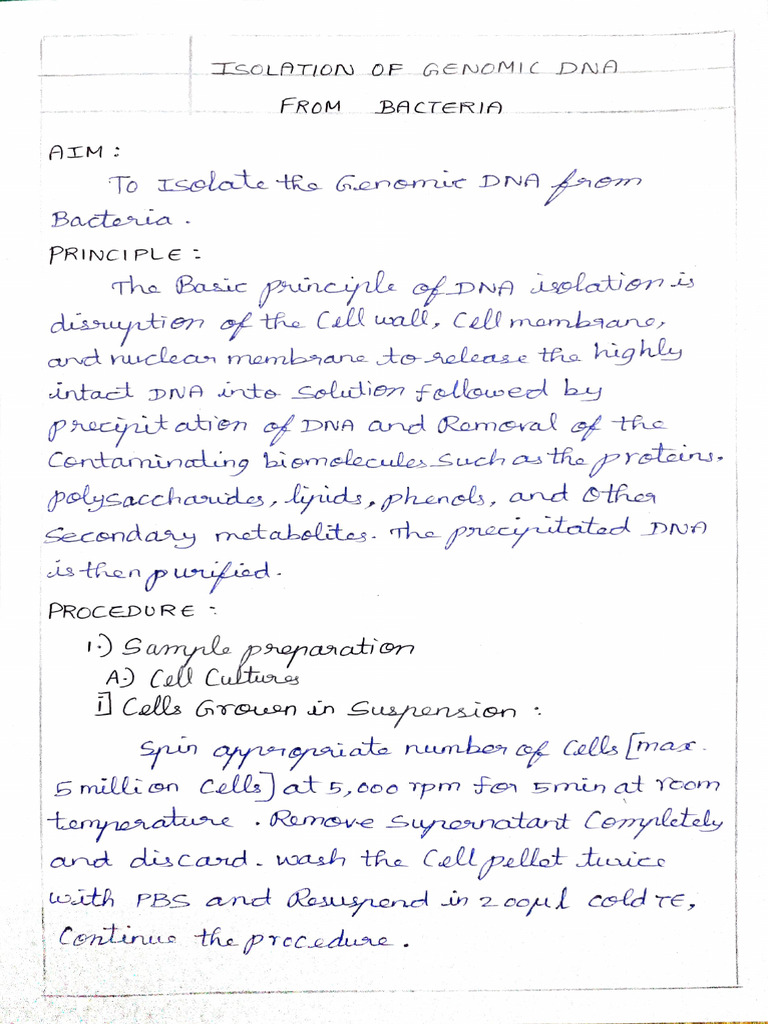 ISOLATION OF GENOMIC DNA
FROM BACTERIA
AIM :
To Isolate the Genomic DNA from
Bacteria .
PRINCIPLE :
The Basic principle of DNA isolation is
disruption of the Cell wall, Cell membrane,
and nuclear membrane to release the highly
intact DNA into Solution followed by
precipitation of DNA and Removal of the
Contaminating biomolecules Such as the proteins,
polysaccharides, lipids, phenols, and Other
Secondary metabolites. The precipitated DNA
is then purified.
PROCEDURE :
1.) Sample preparation
A.) Cell Cultures
i] Cells Grown in Suspension :
Spin appropriate number of Cells [max.
5 million Cells] at 5,000 rpm for 5min at room
temperature . Remove Supernatant Completely
and discard. wash the Cell pellet twice
with PBS and Resuspend in 200µl cold TE,
Continue the procedure .